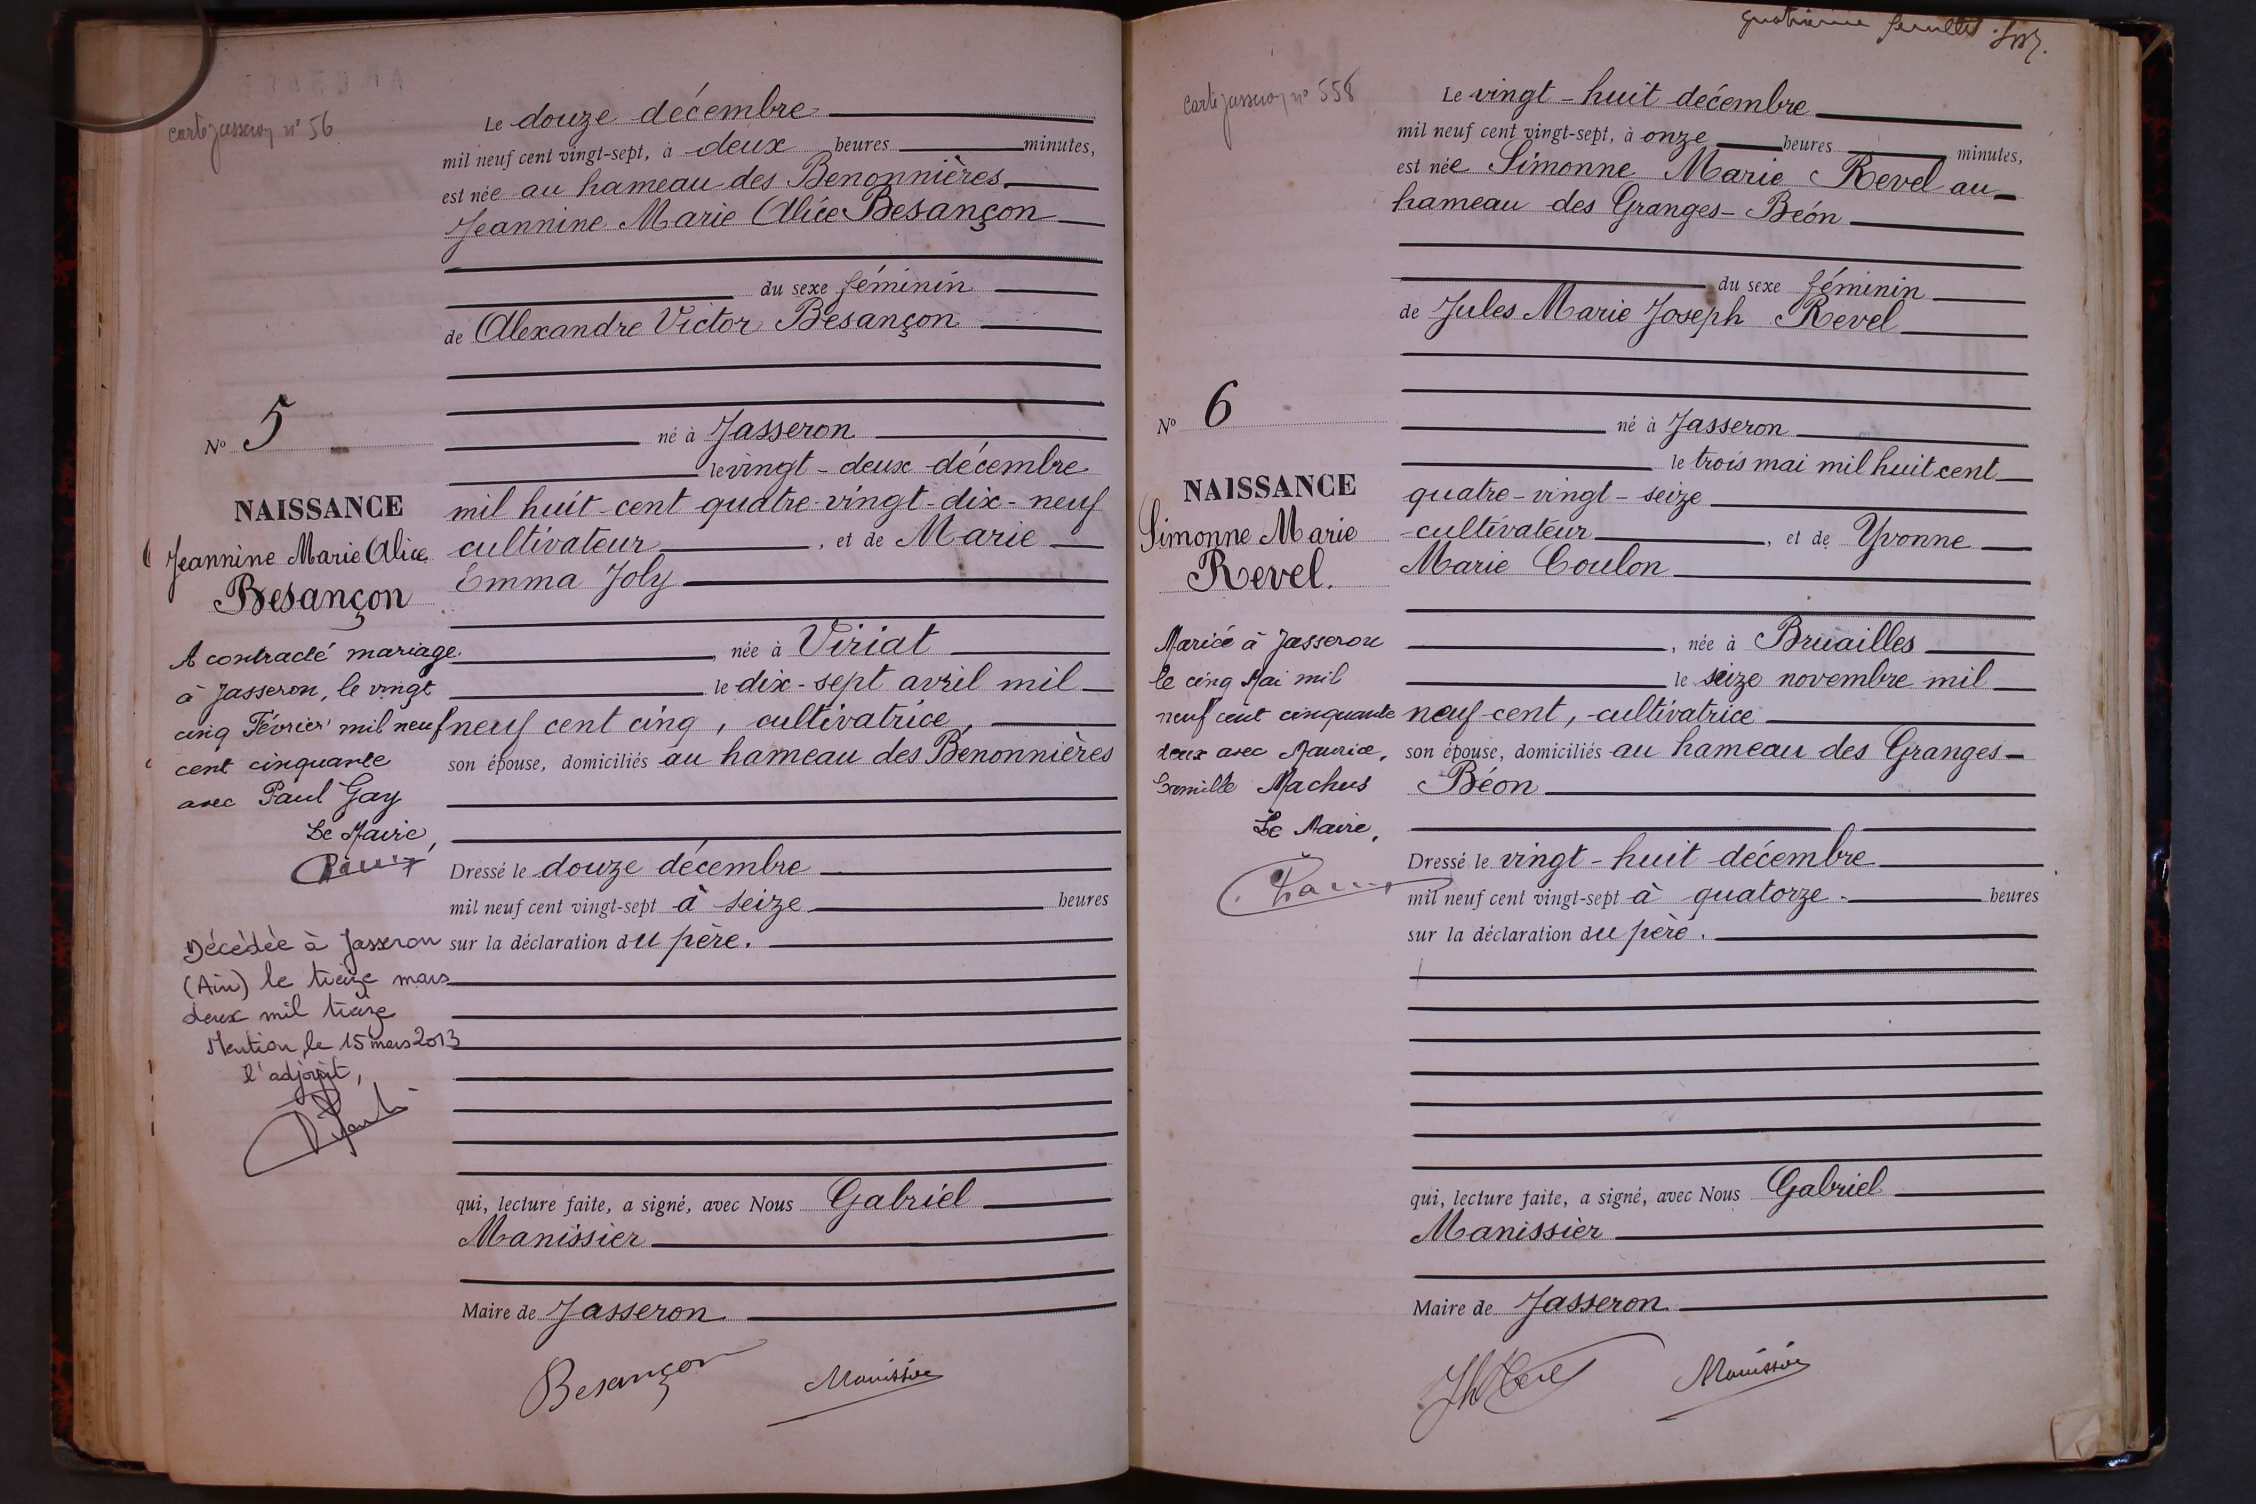 carte jasseron n° 56
Le douze décembre
mil neuf cent vingt-sept, à deux heures minutes,
est née au hameau des Benonnières
Jeannine Marie Alice Besançon
du sexe féminin
de Alexandre Victor Besançon
né à Jasseron
le vingt-deux décembre
mil huit-cent quatre-vingt-dix-neuf
cultivateur, et de Marie
Emma Joly
, née à Viriat
le dix-sept avril mil
neuf cent cinq, cultivatrice,
son épouse, domiciliés au hameau des Benonnières
Dressé le douze décembre
mil neuf cent vingt-sept à seize heures
sur la déclaration du père.
qui, lecture faite, a signé, avec Nous Gabriel
Manissier
Maire de Jasseron
Besançon Manissier
N° 5
NAISSANCE
Jeannine Marie Alice
Besançon
A contracté mariage
à Jasseron, le vingt
cinq Février mil neuf
cent cinquante
avec Paul Gay
Le Maire,
Décédée à Jasseron
(Ain) le treize mars
deux mil treize
Mention le 15 mars 2013
l'adjoint,
quatrième feuillet
carte jasseron n° 558
Le vingt-huit décembre
mil neuf cent vingt-sept, à onze heures minutes,
est née Simonne Marie Revel au
hameau des Granges-Béon
du sexe féminin
de Jules Marie Joseph Revel
né à Jasseron
le trois mai mil huit cent
quatre-vingt-seize
cultivateur, et de Yvonne
Marie Coulon
, née à Bruailles
le seize novembre mil
neuf-cent, cultivatrice
son épouse, domiciliés au hameau des Granges-
Béon
Dressé le vingt-huit décembre
mil neuf cent vingt-sept à quatorze heures
sur la déclaration du père.
qui, lecture faite, a signé, avec Nous Gabriel
Manissier
Maire de Jasseron
Manissier
N° 6
NAISSANCE
Simonne Marie
Revel.
Mariée à Jasseron
le cinq Mai mil
neuf cent cinquante
deux avec Maurice,
Camille Machus
Le Maire,